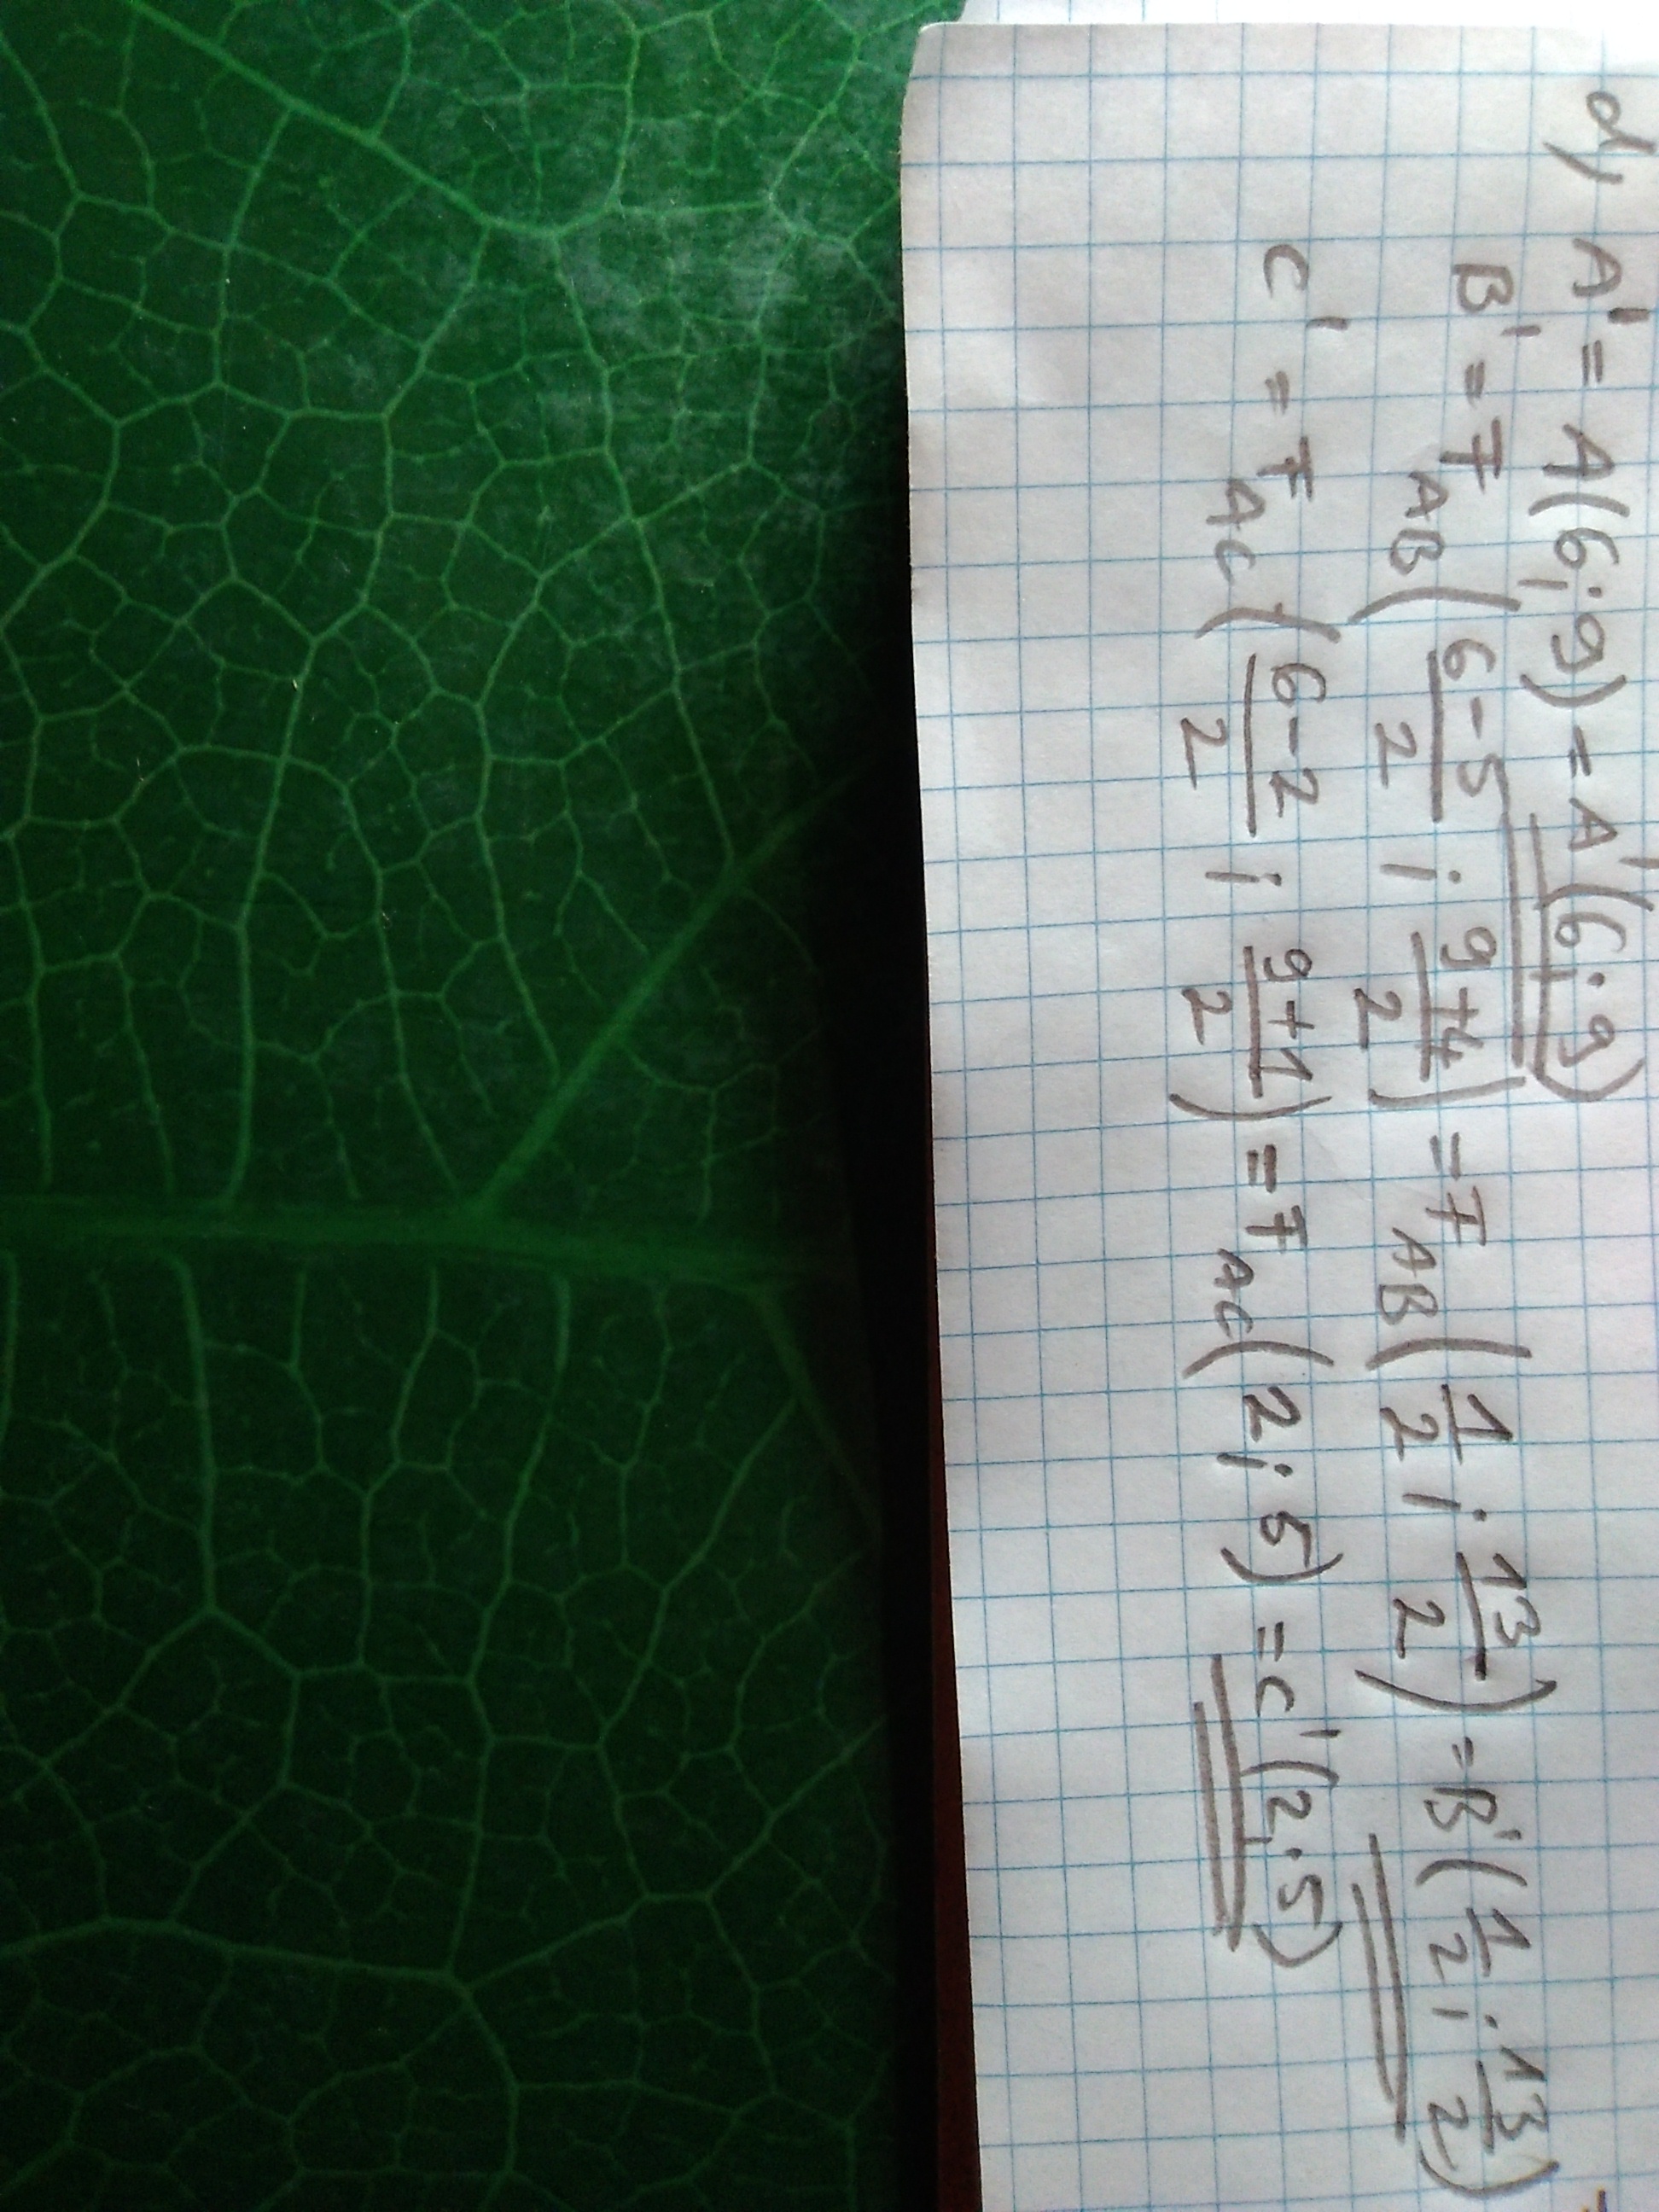 d, A' = A(6; 9) = A'(6; 9)
B' = F AB (6-5/2 ; 9+4/2) = F AB (1/2 ; 13/2) = B' (1/2 ; 13/2)
C' = F AC (6-2/2 ; 9+1/2) = F AC (2; 5) = C' (2; 5)